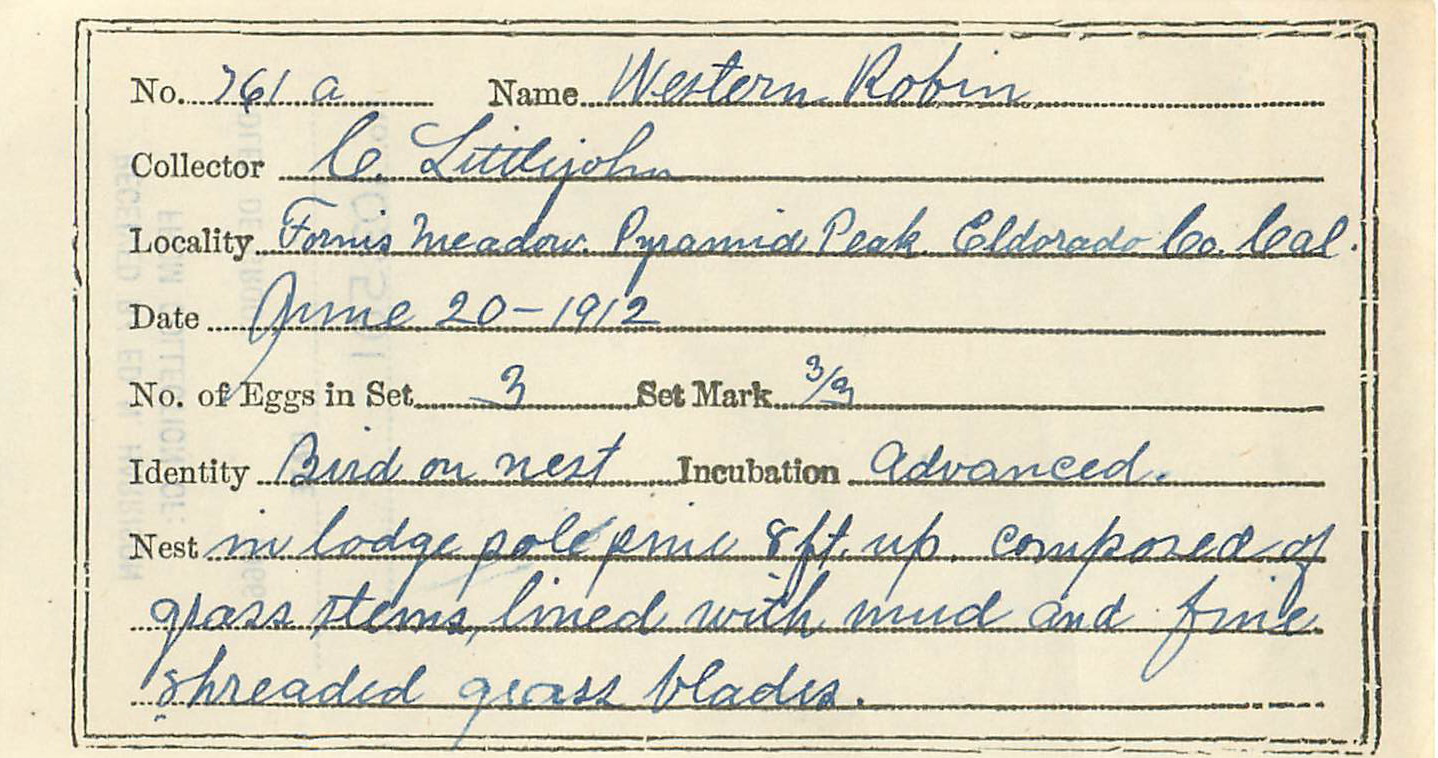 No. 761 a Name Western Robin
Collector C. Littlejohn
Locality Fornis Meadow. Pyramid Peak Eldorado Co. Cal.
Date June 20-1912
No. of Eggs in Set 3 Set Mark 3/3
Identity Bird on nest Incubation Advanced.
Nest in lodge pole pine 8 ft. up. composed of
grass stems, lined with mud and fine
shreaded grass blades.